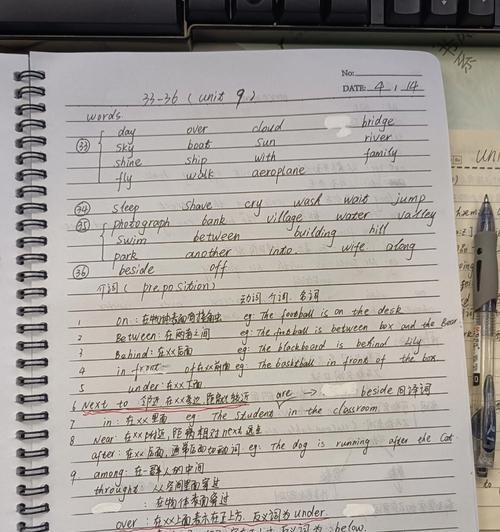 No:
DATE: 4 . 14
33-36 ( unit 9 )
words
33 day over cloud bridge
sky boat sun river
shine ship with family
fly walk aeroplane
34 sleep shave cry wash wait jump
35 photograph bank village water valley
swim between building hill
park another into wife along
36 beside off
介词 ( preposition )
动词 介词 名词
1 on : 在物体表面有接触 eg: The football is on the desk
2 Between : 在两者之间 eg: The football is between box and the Bear
3 Behind : 在xx后面 eg: The blackboard is behind Lily
4 in front of 在xx前面 eg: The basketball in front of the box
5 under : 在xx下面
6 Next to 在xx旁边 距离 are → beside 同译词
7 in : 在xx里面 eg: The student in the classroom
8 Near : 在xx附近, 距离相对next远点
after : 在xx后面, eg: The dog is running after the Cat
9 among : 在一群人的中间
throught : 从空间里面穿过
: 在物体表面穿过
over : 在xx上面表示在正上方. 反义词为under.
反义词为 : below.